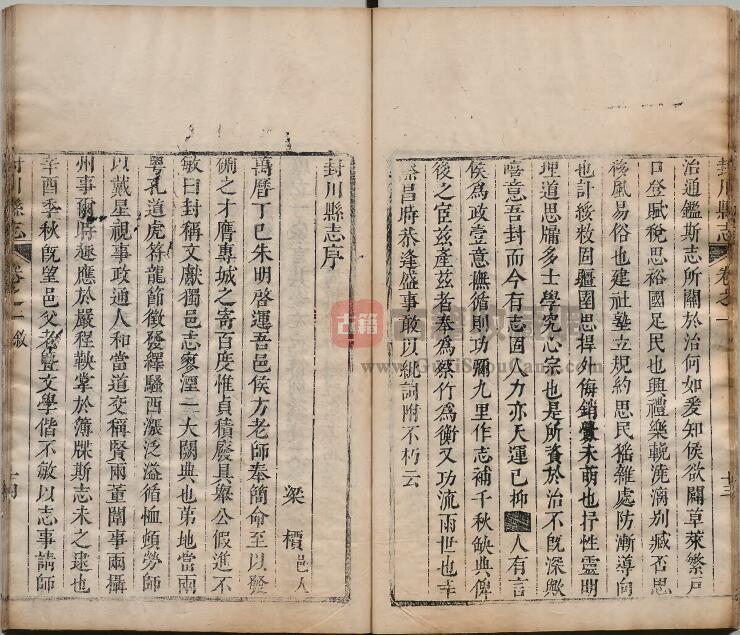 封川縣志 卷之一 十三
治通鑑斯志所關於治何如爰知侯欲闢草萊繁戸
口登賦稅思裕國足民也興禮樂輓澆漓別臧否思
移風易俗也建社塾立規約思民猺雜處防漸導向
也計綏救固疆圉思捍外侮銷釁未萌也抒性靈明
理道思牖多士學究心宗也是所資於治不旣深歟
嘻意吾封而今有志固人力亦天運已抑 人有言
侯爲政壹意撫循則功彌九里作志補千秋缺典俾
後之宦茲產茲者奉爲蔡竹爲衡又功流兩世也幸
際昌時恭逢盛事敢以紕詞附不朽云
封川縣志序
梁 檟 邑人
萬曆丁巳朱明啓運吾邑侯方老師奉簡命至以發
硎之才膺專城之寄百度惟貞積廢具舉公假進不
敏曰封稱文獻獨邑志寥湮二大闕典也第地當兩
粵孔道虎符龍節徵發繹騷西漲泛溢循恤頻勞師
以戴星視事政通人和當道交稱賢兩臺聞事兩攝
州事爾時趣應於嚴程鞅掌於簿牒斯志未之逮也
辛酉季秋旣望邑父老曁文學偕不敏以志事請師
封川縣志 卷之一 敘 十四
古籍
www.GujiShouLang.com